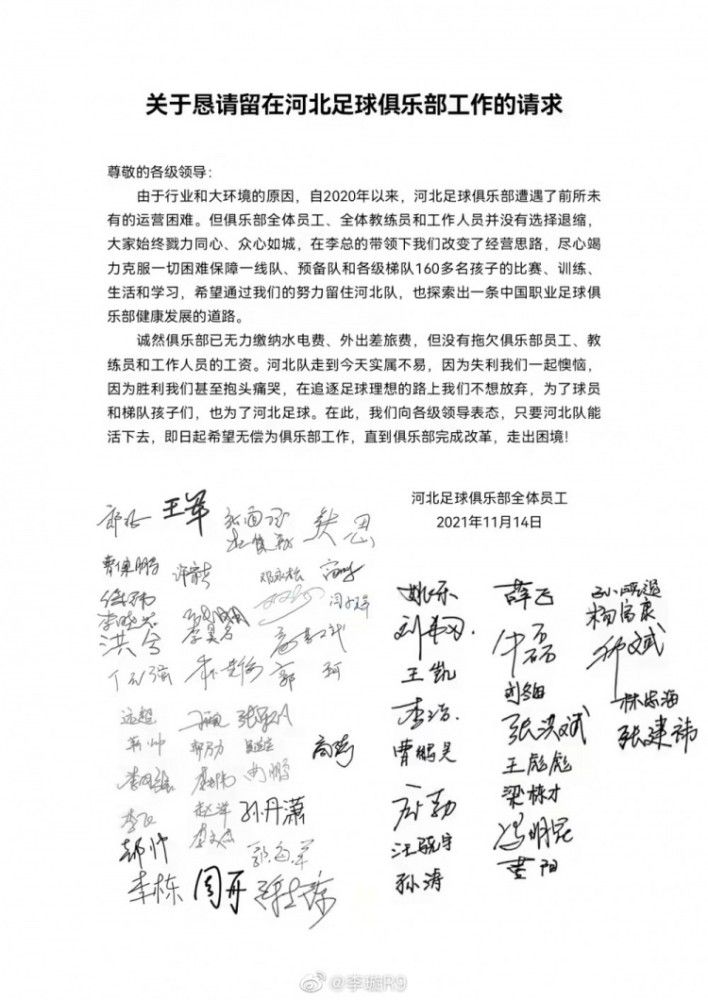 关于恳请留在河北足球俱乐部工作的请求
尊敬的各级领导：
由于行业和大环境的原因，自2020年以来，河北足球俱乐部遭遇了前所未
有的运营困难。但俱乐部全体员工、全体教练员和工作人员并没有选择退缩，
大家始终戮力同心、众心如城，在李总的带领下我们改变了经营思路，尽心竭
力克服一切困难保障一线队、预备队和各级梯队160多名孩子的比赛、训练、
生活和学习，希望通过我们的努力留住河北队，也探索出一条中国职业足球俱
乐部健康发展的道路。
诚然俱乐部已无力缴纳水电费、外出差旅费，但没有拖欠俱乐部员工、教
练员和工作人员的工资。河北队走到今天实属不易，因为失利我们一起懊恼，
因为胜利我们甚至抱头痛哭，在追逐足球理想的路上我们不想放弃，为了球员
和梯队孩子们，也为了河北足球。在此，我们向各级领导表态，只要河北队能
活下去，即日起希望无偿为俱乐部工作，直到俱乐部完成改革，走出困境！
河北足球俱乐部全体员工
2021年11月14日
王军
洪兮
郭 珂
高嵩
孙丹潇
郝帅
李栋
周开
姚乐
薛飞
王凯
李浩
曹鹏昊
孙涛
牛磊
张洪斌
王彪彪
梁栋才
冯明昆
黄阳
杨富康
林忠海
张建祎
@李璇R9